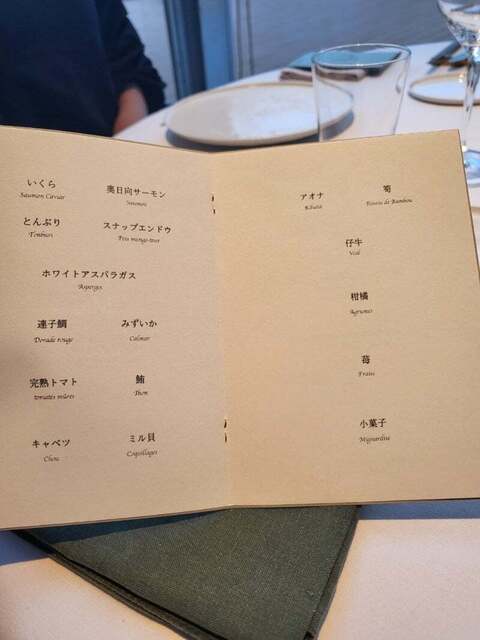 いくら
Saumon Caviar
奥日向サーモン
Saumon
とんぶり
Tonburi
スナップエンドウ
Pois mange-tout
ホワイトアスパラガス
Asperges
連子鯛
Dorade rouge
みずいか
Calmar
完熟トマト
tomates mûres
鮪
Thon
キャベツ
Chou
ミル貝
Coquillages
アオナ
筍
Pousse de Bambou
仔牛
Veal
柑橘
Agrumes
苺
Frais
小菓子
Mignardise